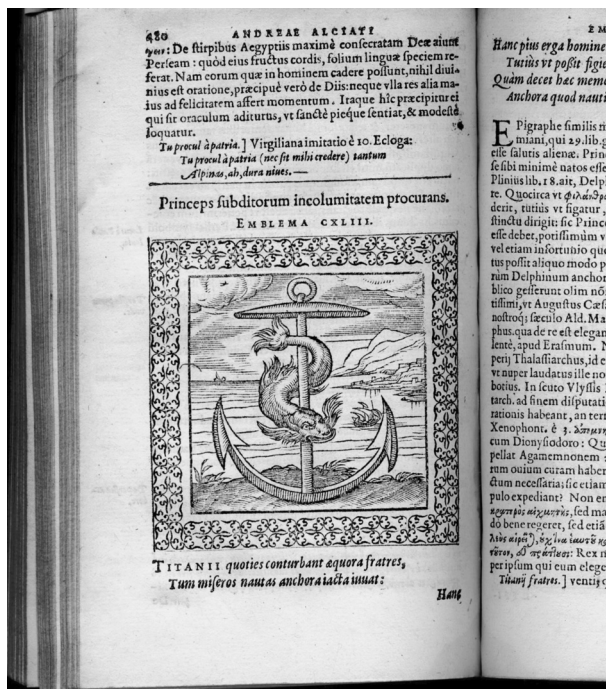 480 ANDREAE ALCIATI
De stirpibus Aegyptiis maximè consecratam Deæ aiunt
Perseam: quòd eius fructus cordis, folium linguæ speciem re-
ferat. Nam eorum quæ in hominem cadere possunt, nihil diui-
nius est oratione, præcipuè verò de Diis: neque vlla res alia ma-
ius ad felicitatem affert momentum. Itaque hîc præcipitur ei
qui sit oraculum aditurus, vt sanctè pieque sentiat, & modestè
loquatur.
Tu procul à patria.] Virgiliana imitatio è 10. Ecloga:
Tu procul à patria (nec sit mihi credere) tantum
Alpinas, ah, dura niues. —
Princeps subditorum incolumitatem procurans.
EMBLEMA CXLIII.
TITANII quoties conturbant æquora fratres,
Tum miseros nautas anchora iacta iuuat:
Hanc
EM
Hanc pius erga homine
Tutius vt possit figie
Quàm decet hæc memo
Anchora quod nauti
EPigraphe similis
miani, qui 29. lib. g
esse salutis alienæ. Prin
se sibi minimè natos esse
Plinius lib. 18. ait, Delp
re. Quocirca vt
derit, tutius vt figatur,
stinctu dirigit: sic Princ
esse debet, potissimùm v
vel etiam infortunio que
tus possit aliquo modo p
rùm Delphinum anchor
blico gesserunt olim nō
tissimi, vt Augustus Cæs
nostroq; sæculo Ald. Ma
phus. qua de re est elegan
lentè, apud Erasmum. N
perij Thalassiarchus, id e
vt nuper laudatus ille no
botius. In scuto Vlyssis
tarch. ad finem disputati
rationis habeant, an terr
Xenophont. è 3.
cum Dionysiodoro: Qu
pellat Agamemnonem
rum ouium curam haber
ctum necessaria; sic etiam
pulo expediant? Non er
sed ma
do bene regeret, sed etiā
Rex n
per ipsum qui eum elege
Titanij fratres.] ventis q